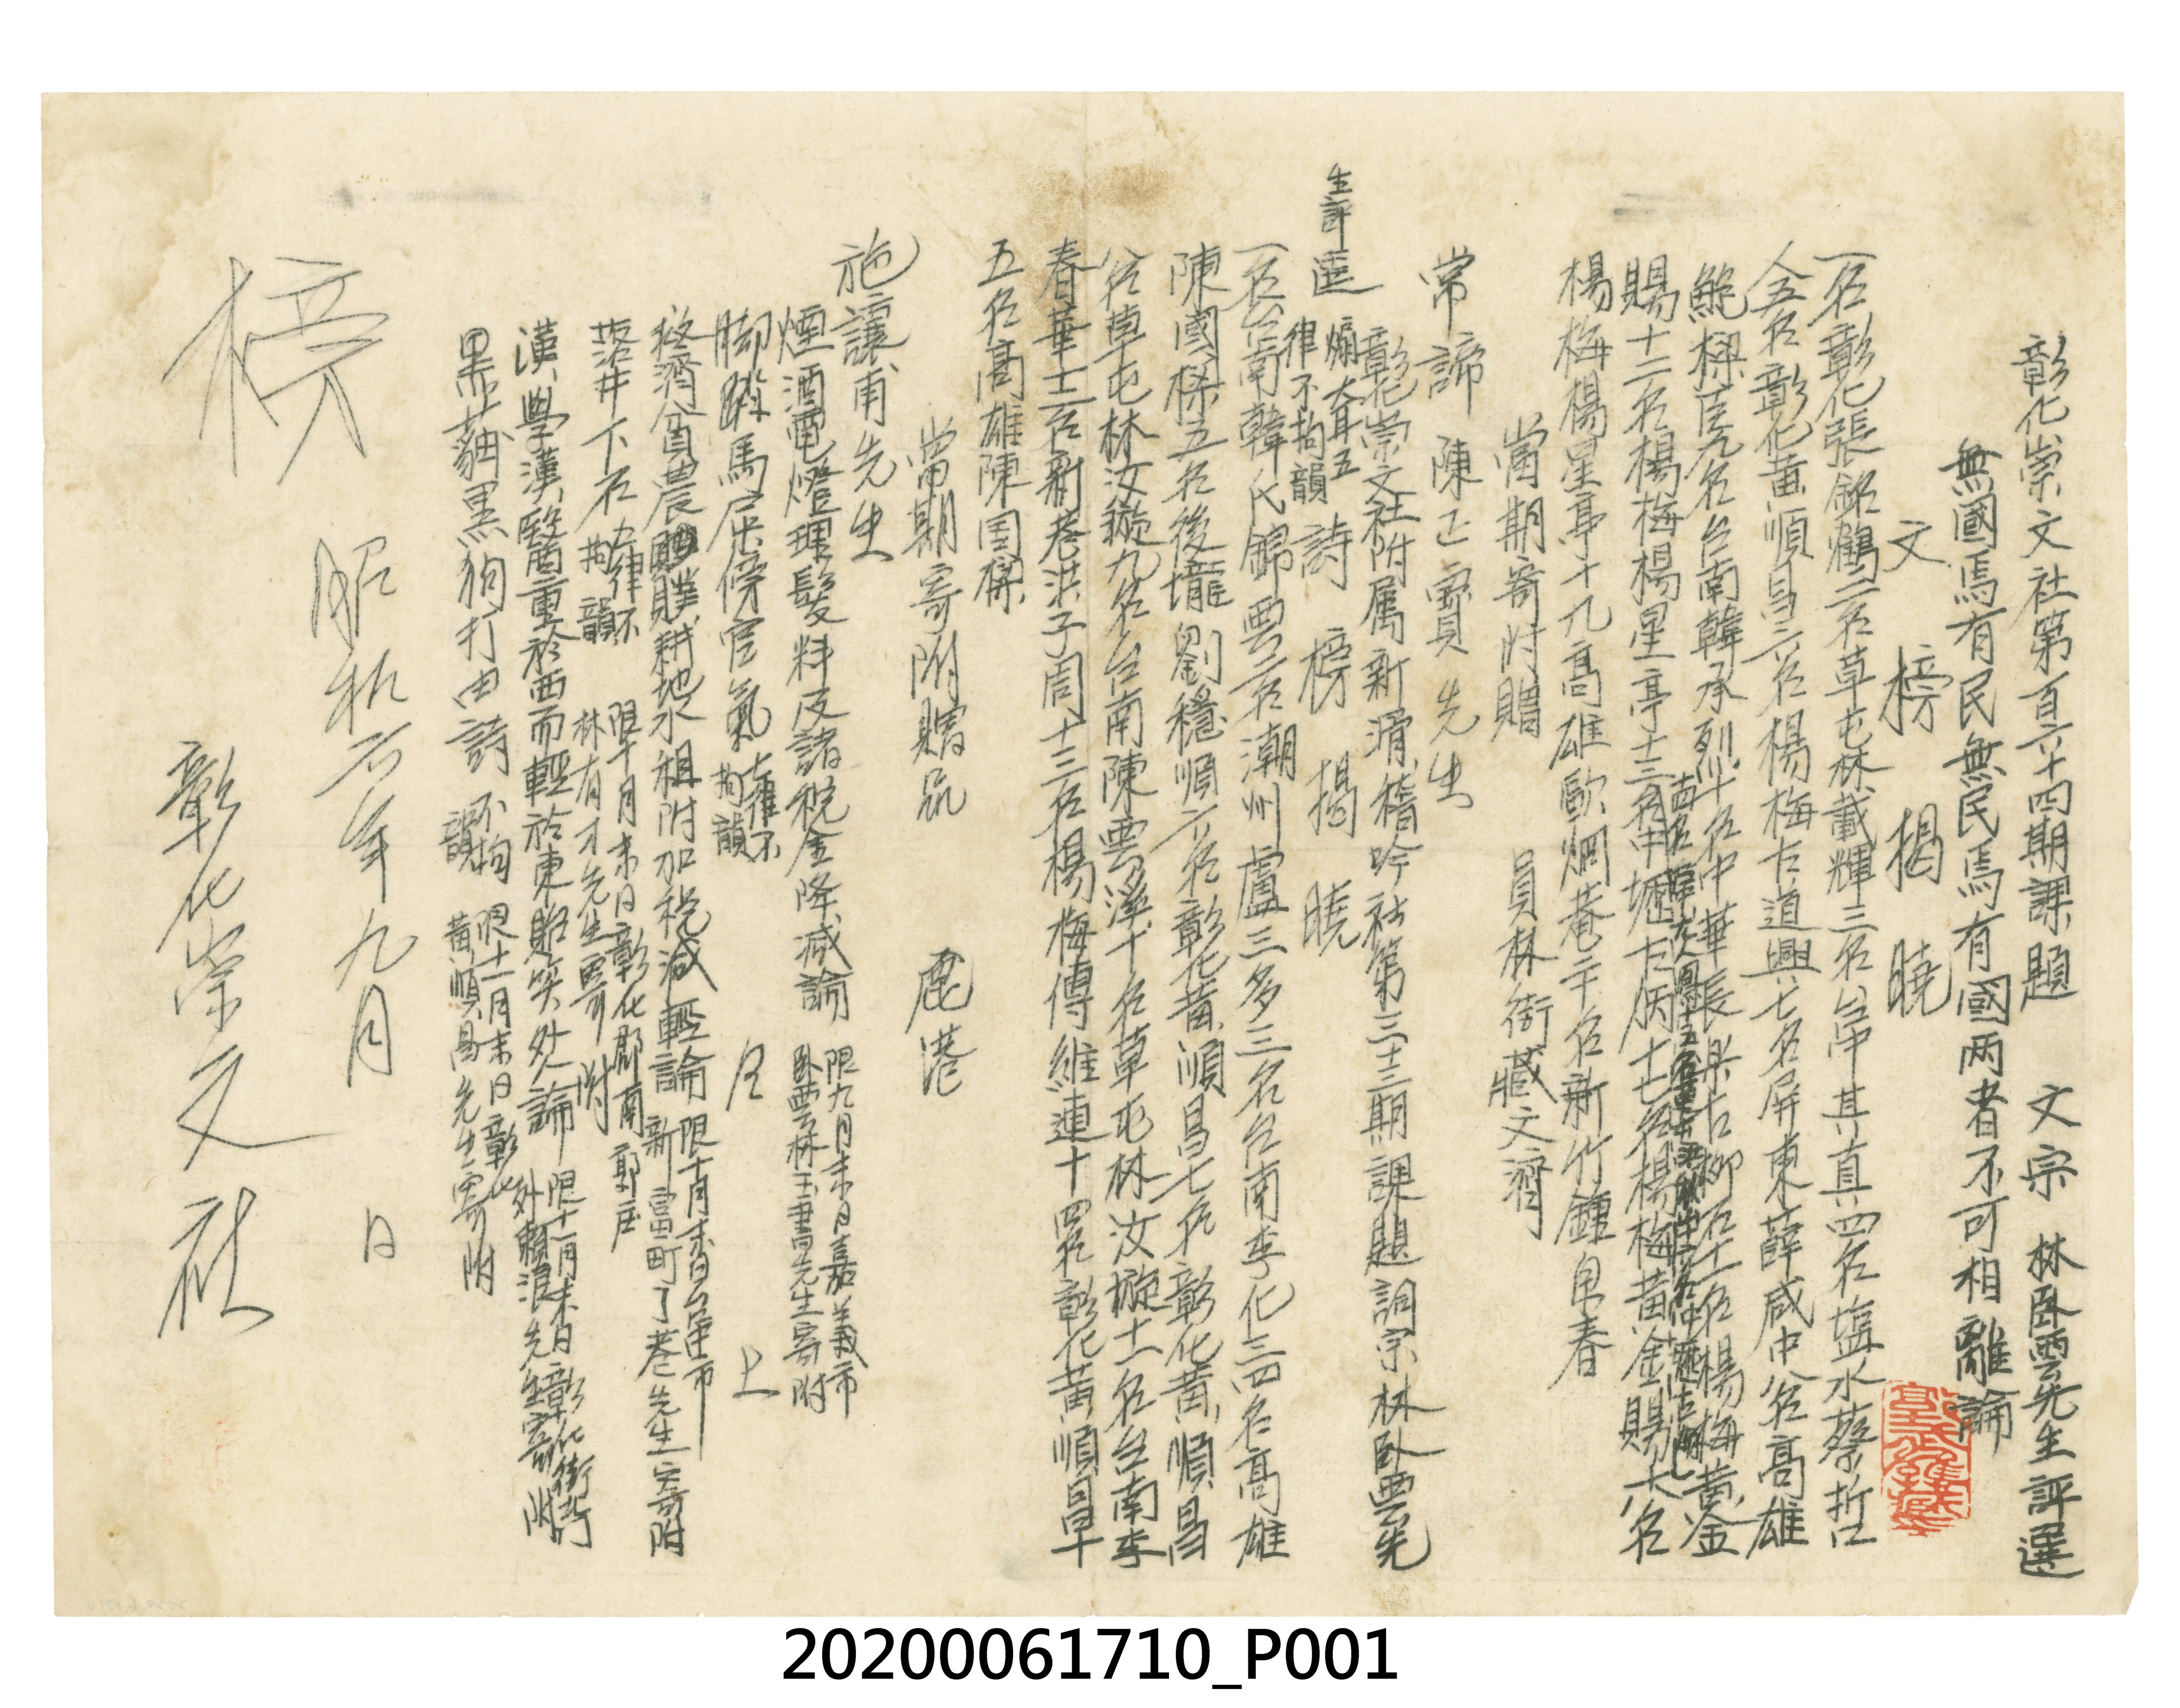 彰化崇文社第百六十四期課題　文宗　林臥雲先生評選
無國焉有民無民焉有國兩者不可相離論
文　榜　揭　曉
一名彰化張銘鶴二名草屯林載輝三名台中其真四名塩水蔡哲
人五名彰化黃順昌六名楊梅古道興七名屏東薛咸中八名高雄
鮑樑臣九名台南韓承烈十名中華長樂古柳石十一名楊梅黃金
賜十二名楊梅楊星亭十三名中壢古炳十七名楊梅黃金賜十八名
楊梅楊星亭十九高雄歐烟巷二十名新竹鍾皐春
當期寄附贈　員林街藏文濟
常諦　陳正寶先生
彰化崇文社附属新滑稽吟社第三十三期課題詞宗林臥雲先
生評選
煽大耳五
律不拘韻
詩　榜　揭　曉
一名台南韓氏錦雲二名潮州盧三多三名台南李化三四名高雄
陳國樑五名後壠劉穩順六名彰化黃順昌七名彰化黃順昌
八名草屯林汝鏇九名台南陳雲溪十名草屯林汝鏇十一名台南李
春華十二名新巷洪子周十三名楊梅傅維連十四名彰化黃順昌十
五名高雄陳国樑
當期寄附贈品　鹿港
施讓甫先生
煙酒電燈理髮料及諸税金降減論
限九月末日嘉義市
臥雲林玉書先生寄附
脚踏馬屎傍官氣
七律不
拘韻
仝　上
救濟貧農贌耕地水租附加税減輕論
限十月末日台中市
新富町了巷先生寄附
落井下石
五律不
拘韻
限十月末日彰化郡南郭庄
林有才先生寄附
漢學漢醫重於西而輕於東貽笑外論
限十一月末日彰化街
外賴浪先生寄附
黑貓黑狗打由詩
不拘
韻
限十一月末日彰化
黃順昌先生寄附
昭和六年九月　日
榜
彰化崇文社
20200061710_P001